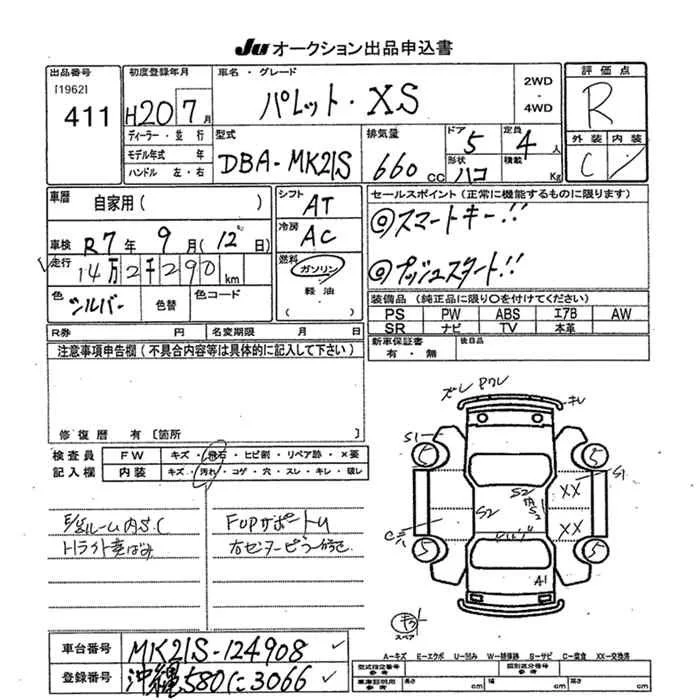 Ju オークション出品申込書
出品番号 初度登録年月 車名・グレード 2WD・4WD 評価点
[1962] 411 H20 7月 パレット・XS R
ディーラー・並行 型式 排気量 ドア 定員 外装 内装
モデル年式 年 DBA-MK21S 660cc 5 4人 C
ハンドル 左・右 形状 ハコ 積載 Kg
車歴 自家用( ) シフト AT セールスポイント(正常に機能するものに限ります)
冷房 AC ◎スマートキー!!
車検 R7年 9月(12日)
走行 14万2千290km 燃料 ガソリン ◎プッシュスタート!!
軽油
( )
色 シルバー 色替 色コード 装備品(純正品に限り○を付けてください)
PS PW ABS エアB AW
SR ナビ TV 本革
R券 円 名変期限 月 日 新車保証書 有・無 後日品
注意事項申告欄(不具合内容等は具体的に記入して下さい)
修復暦 有 [箇所
検査員 FW キズ・飛石・ヒビ割・リペア跡・×要
記入欄 内装 キズ・汚れ・コゲ・穴・スレ・キレ・破レ
ズレ ワレ
キレ
S1
5 5
S1
XX
S2
S2
XX
C
5 5
A1
ルーム内S.C FUPサポートU
Hライト黄ばみ 右センターピラー修正
スペア
A-キズ E-エクボ U-凹み W-補修跡 S-サビ C-腐食 XX-交換済
車台番号 MK21S-124908
型式指定番号 参考 類別区分番号 参考
登録番号 沖縄580に3066
車庫証明用 参考 長さ cm 幅 cm 高さ cm